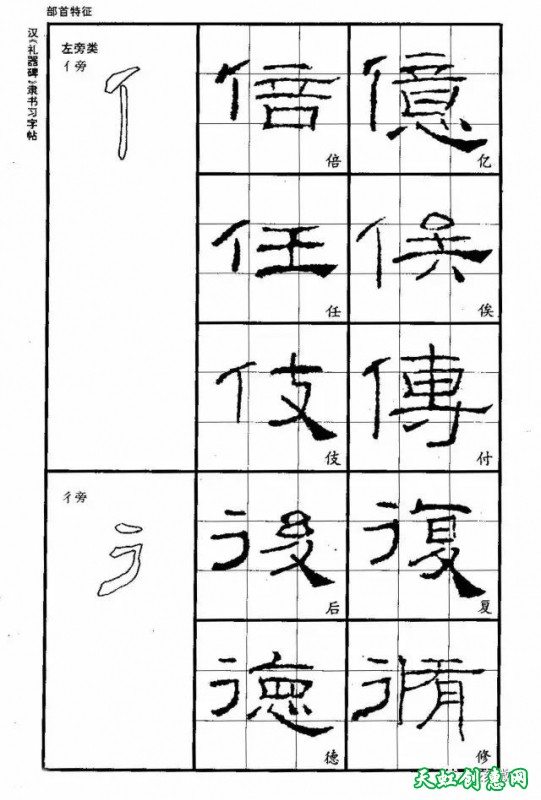 部首特征
汉《礼器碑》隶书习字帖
左旁类
亻旁
倍 億
倍 亿
任 俟
任 俟
伎 傳
伎 付
彳旁
後 復
后 复
德 脩
德 修
天虹创意网